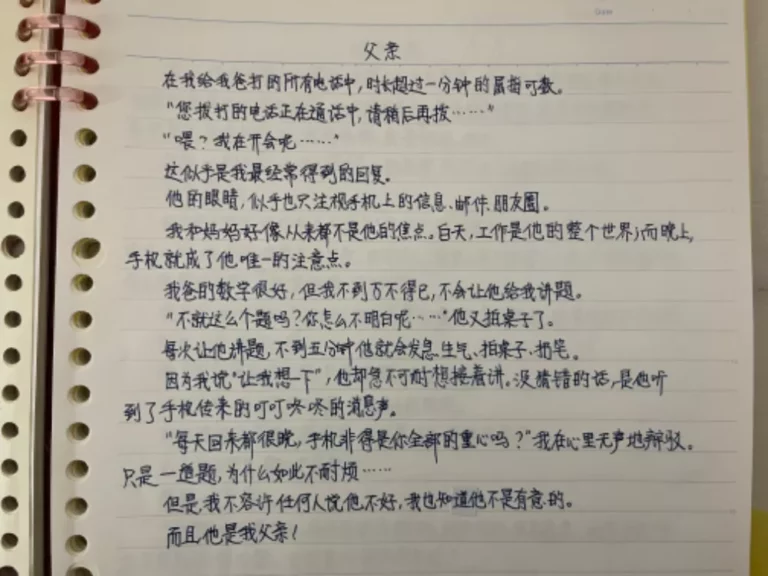 父亲
在我给我爸打的所有电话中，时长超过一分钟的屈指可数。
“您拨打的电话正在通话中，请稍后再拨……”
“喂？我在开会呢……”
这似乎是我最经常得到的回复。
他的眼睛，似乎也只注视手机上的信息、邮件、朋友圈。
我和妈妈好像从来都不是他的焦点。白天，工作是他的整个世界；而晚上，
手机就成了他唯一的注意点。
我爸的数学很好，但我不到万不得已，不会让他给我讲题。
“不就这么个题吗？你怎么不明白呢……”他又拍桌子了。
每次让他讲题，不到五分钟他就会发急、生气、拍桌子、扔笔。
因为我说“让我想一下”，他却急不可耐想接着讲。没猜错的话，是他听
到了手机传来的叮叮咚咚的消息声。
“每天回来都很晚，手机非得是你全部的重心吗？”我在心里无声地辩驳。
只是一道题，为什么如此不耐烦……
但是，我不容许任何人说他不好，我也知道他不是有意的。
而且，他是我父亲！